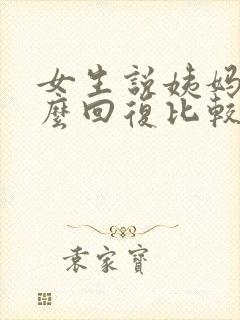 女生說姨媽
麼回復比較
袁家寶